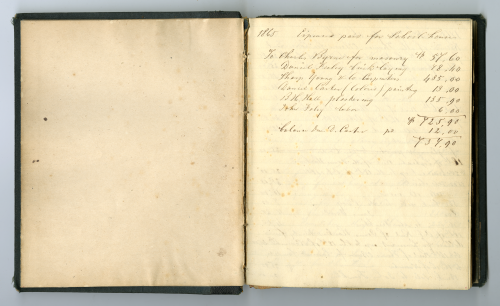 1865 Expenses paid for School house
To Charles Byrne for masonry $ 87.60
Daniel brick laying 78.40
Tharp Young & Co Carpenters 485.00
Daniel Carter (Colored) painting 13.00
B.H. Hall, plastering 135.90
John Foley 6.00
$ 725.90
Balance Due D. Carter pd 12.00
737.90